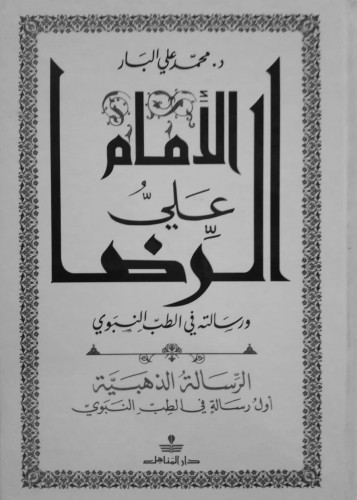 د. محمد علي البار
الإمام
علي
الرضا
ورسالته في الطب النبوي
الرسالة الذهبية
أول رسالة في الطب النبوي
دار المناهل